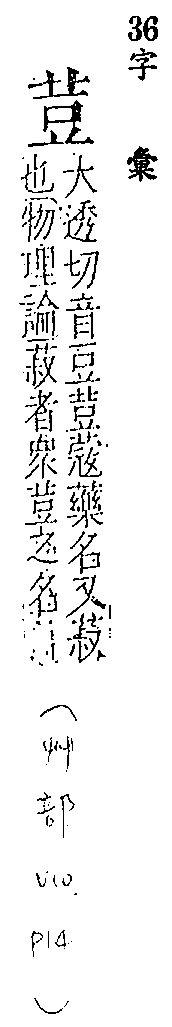 36
字彙
荳
大透切音豆荳蔻藥名又菽
也物理論菽者衆荳之名
(艸部 V10. P14)